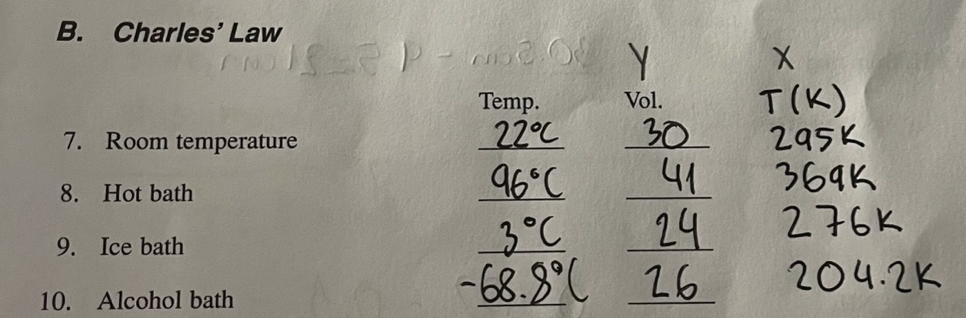 B. Charles' Law
Y X
Temp. Vol. T(K)
7. Room temperature 22°C 30 295K
8. Hot bath 96°C 41 369K
9. Ice bath 3°C 24 276K
10. Alcohol bath -68.8°C 26 204.2K